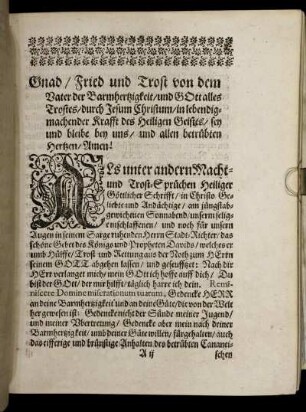 Gnad / Fried und Trost von dem
Vater der Barmhertzigkeit / und GOtt alles
Trostes / durch Jesum Christum / in lebendig-
machender Krafft des Heiligen Geistes / sey
und bleibe bey uns / und allen betrübten
Hertzen / Amen!
ALs unter andern Macht-
und Trost-Sprüchen Heiliger
Göttlicher Schrifft / in Christo Ge-
liebte und Andächtige / am jüngstab-
gewichenen Sonnabend / unserm selig-
entschlaffenen / und noch für unsern
Augen in seinem Sarge ruhenden Herrn Stadt-Richter / das
schöne Gebet des Königs und Propheten Davids / welches er
umb Hülffe / Trost und Rettung aus der Noth zum HErrn
seinem GOTT abgehen lassen / und geseuffzet: Nach dir
HErr verlanget mich / mein GOtt ich hoffe auff dich / Du
bist der GOtt / der mir hilfft / täglich harre ich dein. Remi-
niscere Domine miserationum tuarum, Gedencke HERR
an deine Barmhertzigkeit und an deine Güte / die von der Welt
her gewesen ist: Gedencke nicht der Sünde meiner Jugend /
und meiner Ubertretung / Gedencke aber mein nach deiner
Barmhertzigkeit / umb deiner Güte willen / fürgehalten / auch
das eifferige und brünstige Anhalten des betrübten Cananei-
A ij
schen